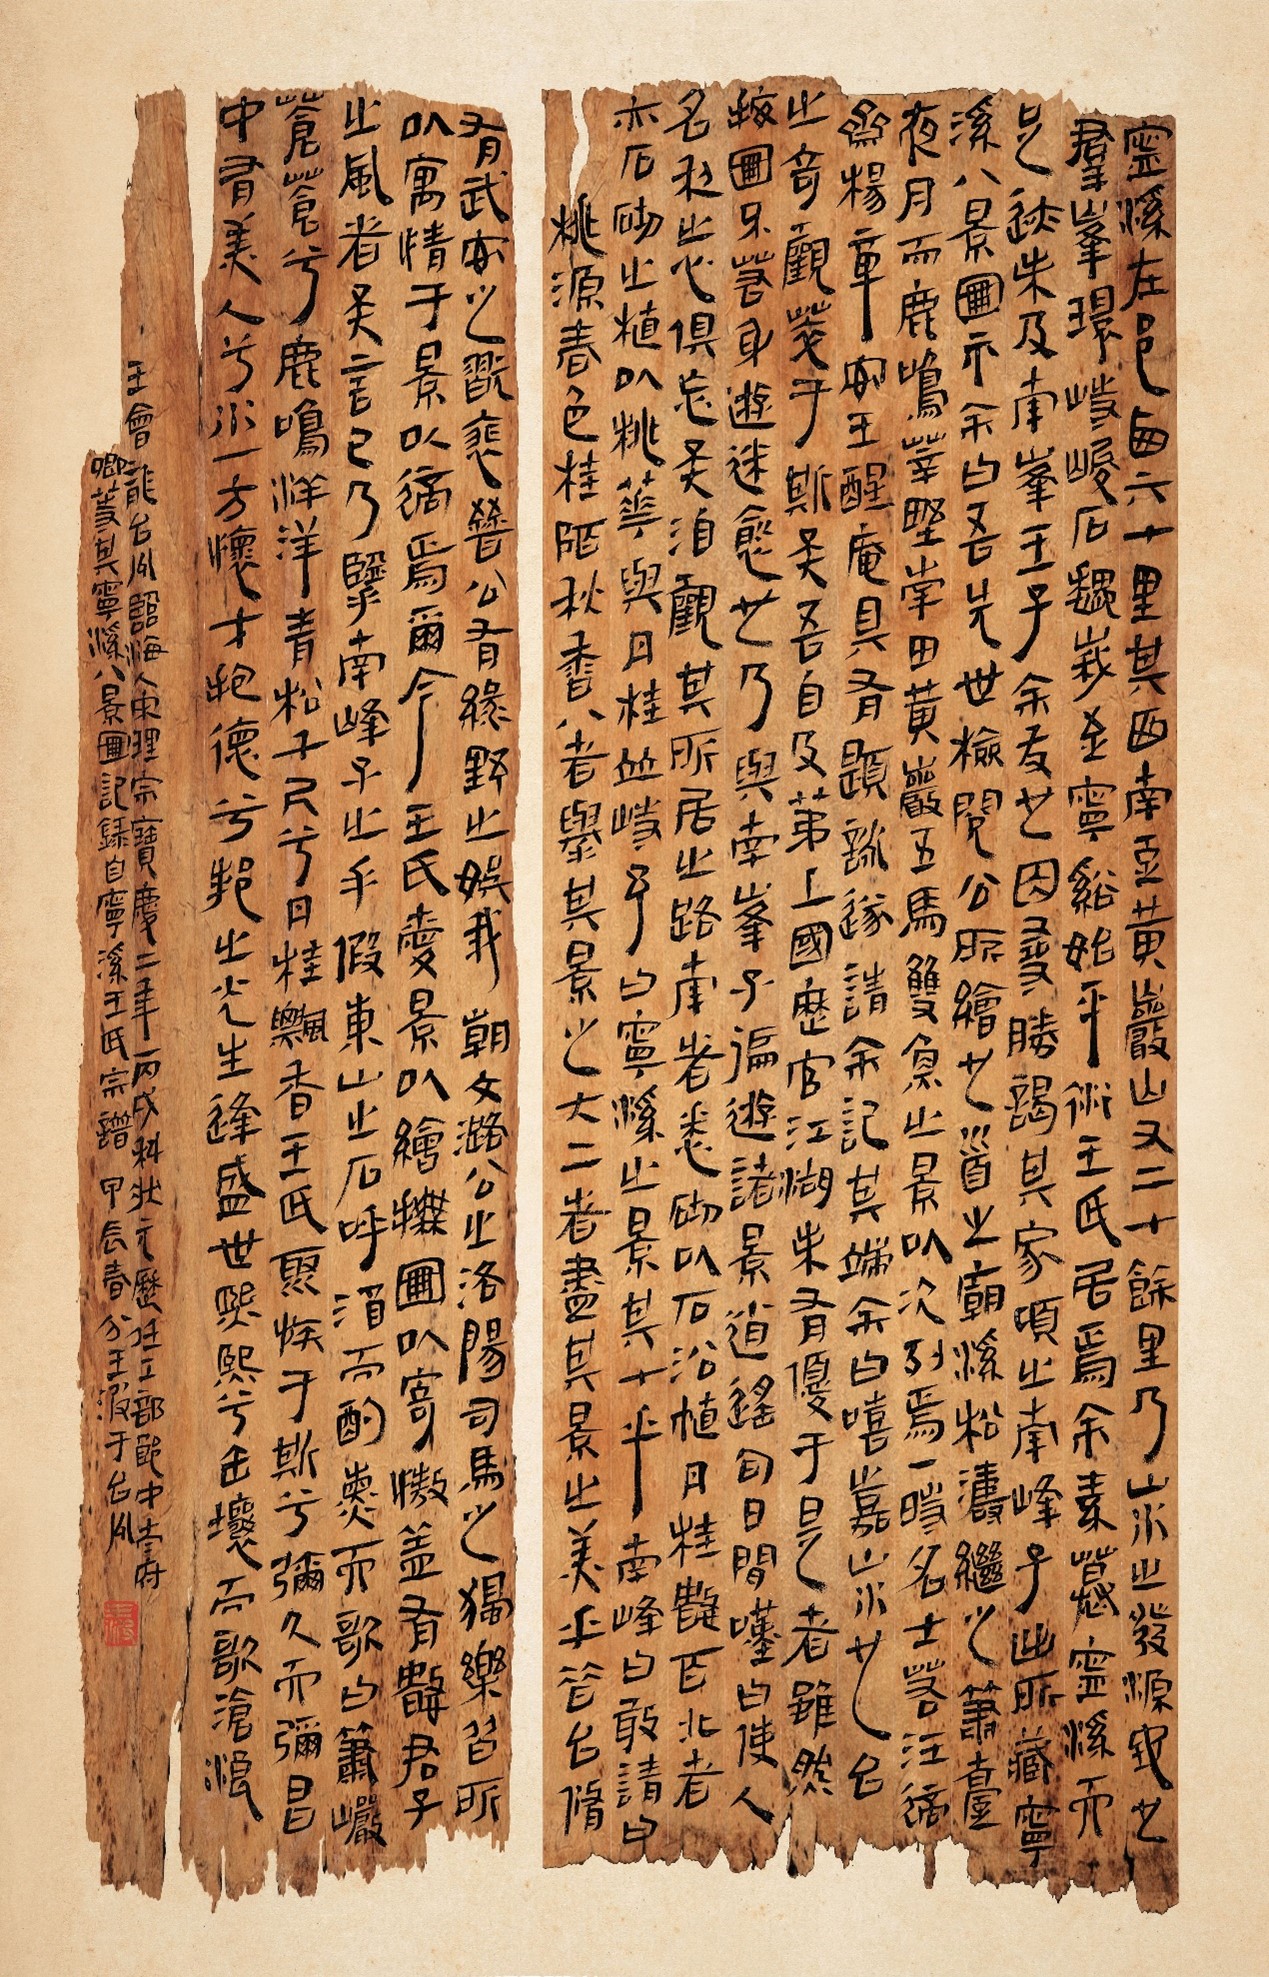 寧溪在邑西六十里其西南至黃巖山又二十餘里乃山水之發源處也
羣峯環峙峻石巍峩至寧谿始平衍王氏居焉余素慕寧溪而
足迹未及南峯王子余友也因尋勝謁其家頃之南峰子出所藏寧
溪八景圖示余曰吾先世檢閱公所繪也首之廟溪松濤繼以簫臺
夜月而鹿鳴莘野常田黃巖五馬雙魚之景以次列焉一時名士若汪
楊章安王醒庵具有題詠遂請余記其端余曰嘻嘉山水也台
之奇觀萃于斯矣吾自及第上國歷官江湖未有優于是者雖然
按圖不若身遊迷愈也乃與南峯子徧遊諸景逍遙旬日間嘆曰使人
名利之心俱忘矣洎觀其所居之路南者悉砌以石沿植月桂數百北者
亦石砌之植以桃華與月桂並峙予曰寧溪之景其十乎南峰曰敢請曰
桃源春色桂陌秋香八者舉其景之大二者盡其景之美乎昔台脩
有武安之戲裴晉公有綠野之娛我朝文潞公之洛陽司馬之獨樂皆所
以寓情于景以適焉爾今王氏愛景以繪籍圖以寄懷蓋有數君子
之風者矣言已乃擥南峰子之手假東山之石呼酒而酌爽而歌曰簫巖
蒼蒼兮鹿鳴洋洋青松千尺兮月桂飄香王氏聚族于斯兮彌久而彌昌
中有美人兮水一方懷才抱德兮邦之光生逢盛世熙熙兮擊壤而歌滄浪
王會龍台州臨海人宋理宗寶慶二年丙戌科狀元歷任工部郎中太府
卿等其寧溪八景圖記錄自寧溪王氏宗譜 甲辰春分王 于台州